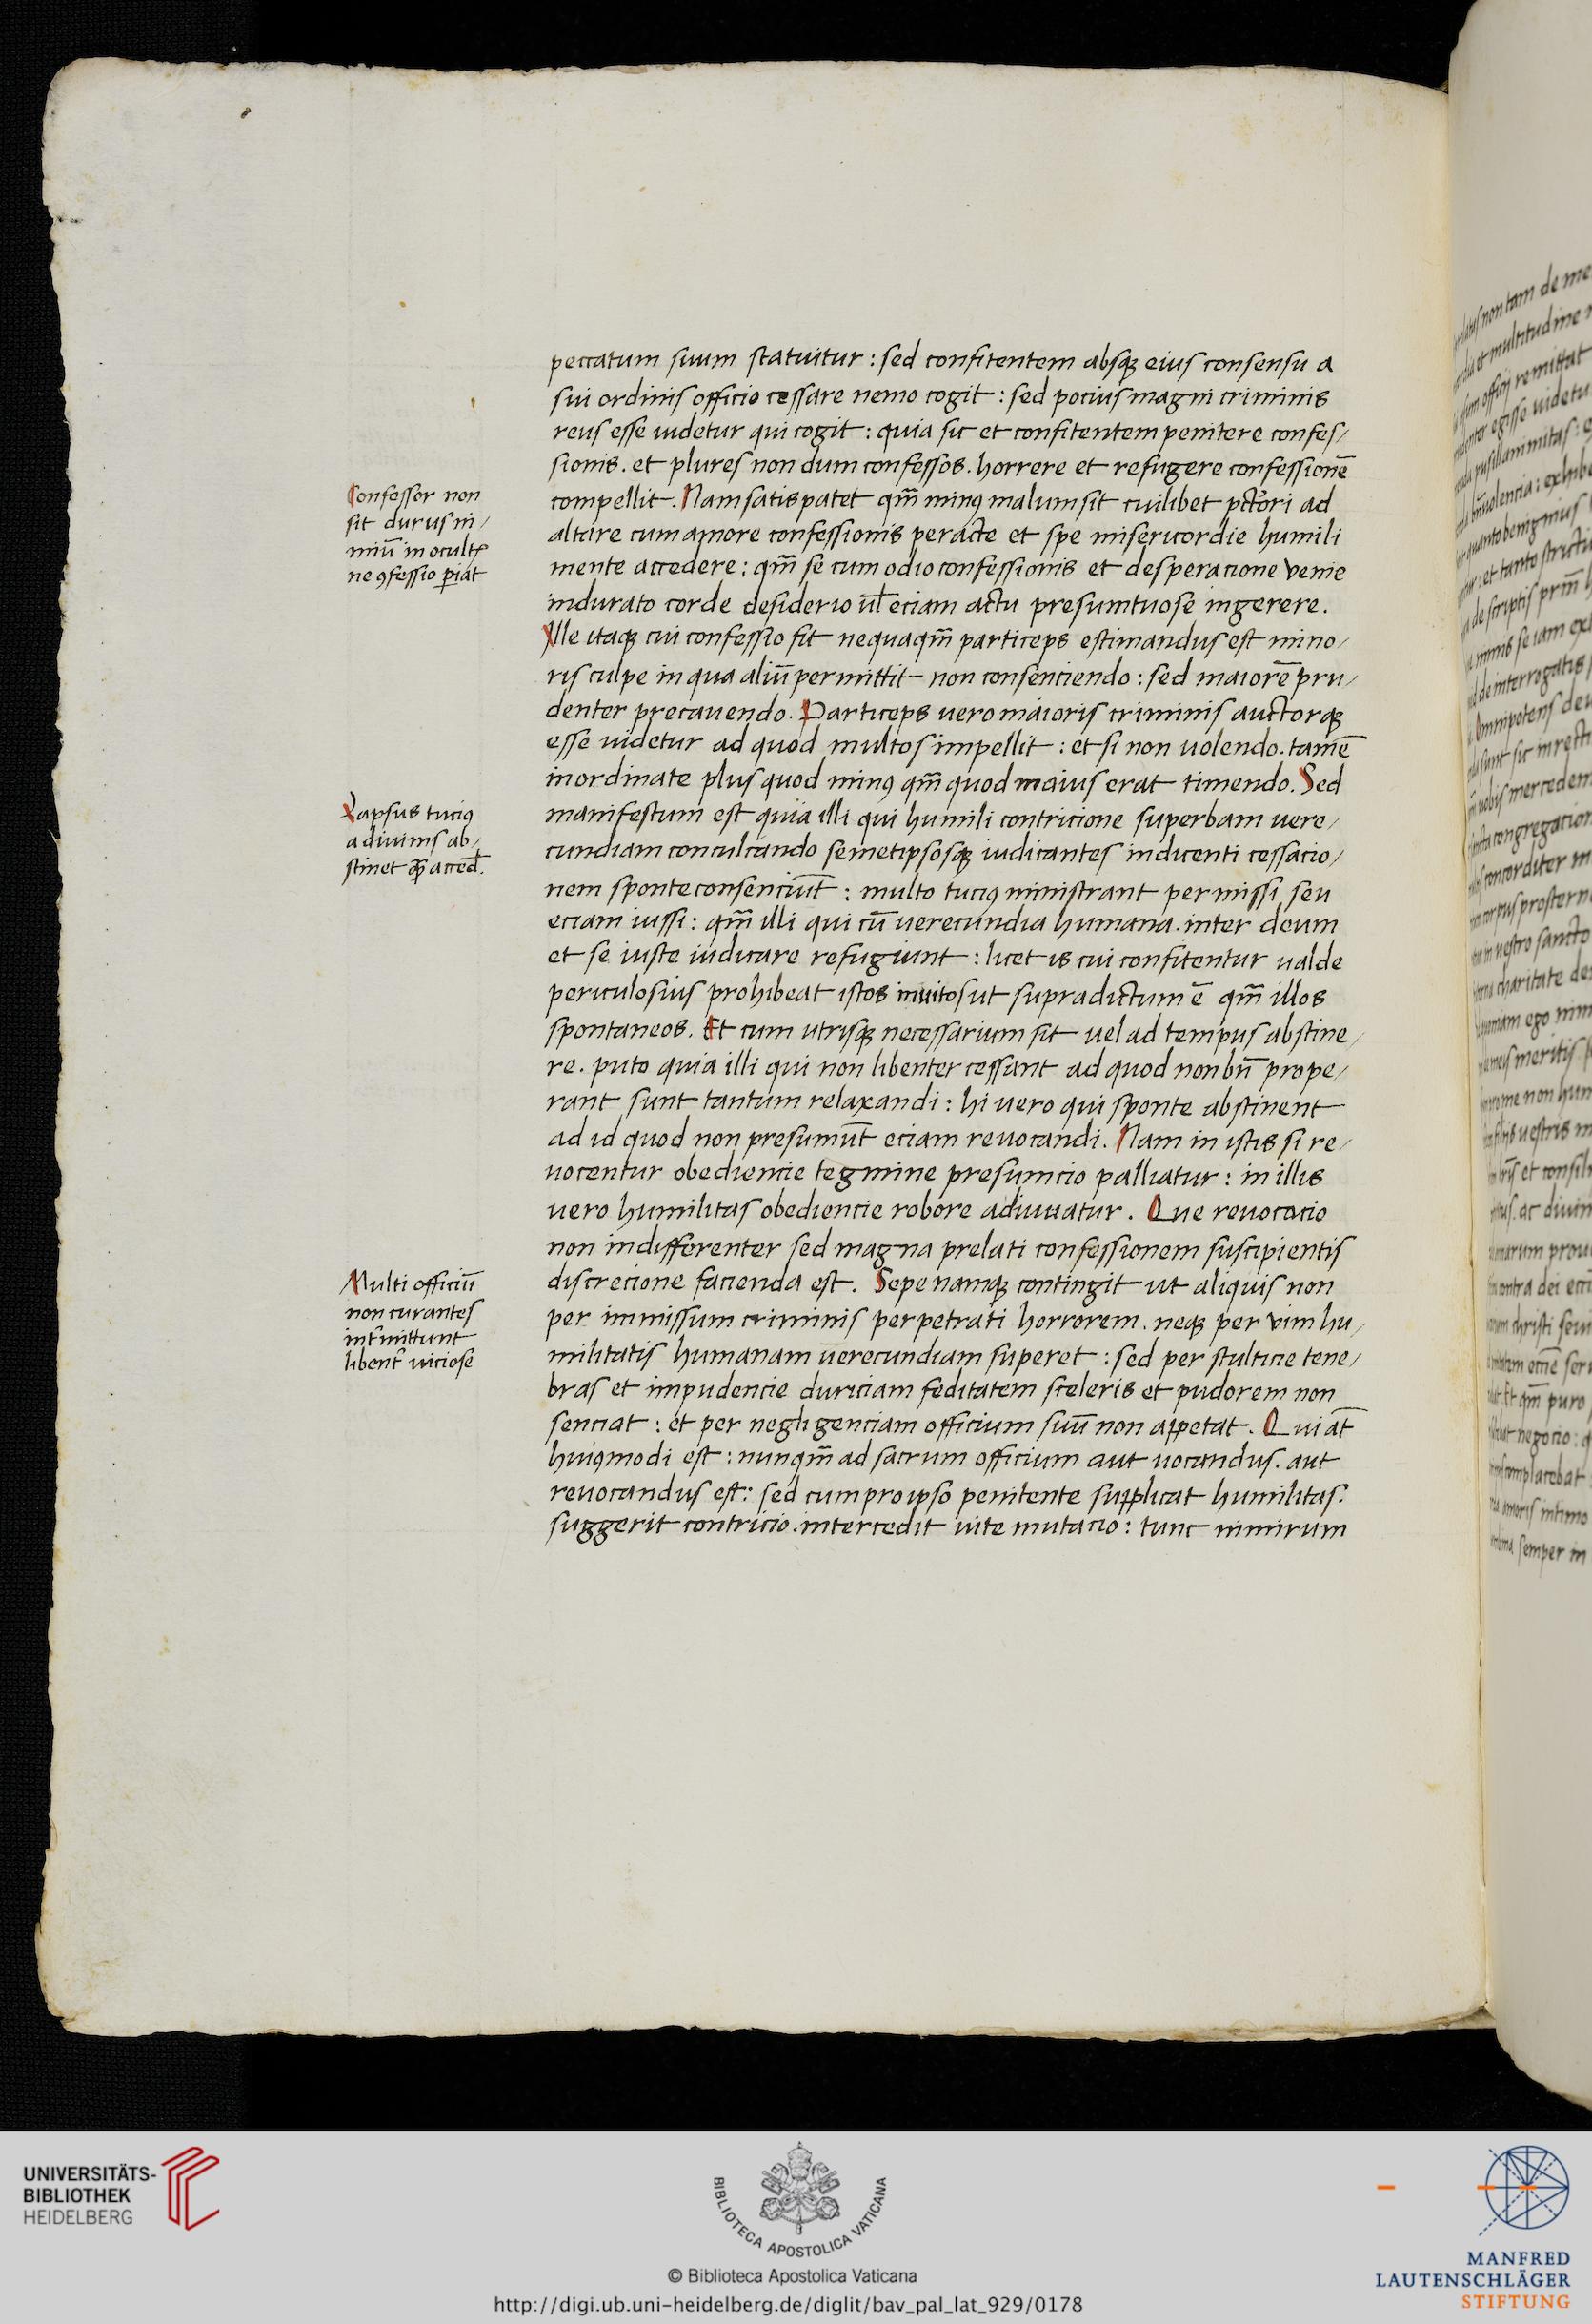 peccatum suum statuitur : sed confitentem absqꝫ eius consensu a
sui ordinis officio cessare nemo cogit : sed pocius magni criminis
reus esse uidetur qui cogit : quia sic et confitentem penitere confes/
sionis . et plures non dum confessos . horrere et refugere confessionē
compellit . Nam satis patet qm̄ minꝰ malum sit cuilibet pctōri ad
altare cum amore confessionis peracte et spe misericordie humili
mente accedere : qm̄ se cum odio confessionis et desperacione venie
indurato corde desiderio ul̄ eciam actu presumtuose ingerere .
Ille itaqꝫ cui confessio fit nequaqm̄ particeps estimandus est mino/
ris culpe in qua aliū permittit non consenciendo : sed maiorē pru/
denter precauendo . Particeps uero maioris criminis auctorqꝫ
esse uidetur ad quod multos impellit : et si non uolendo . tamē
inordinate plus quod minꝰ qm̄ quod maius erat timendo . Sed
manifestum est quia illi qui humili contricione superbam uere/
cundiam conculcando semetipsosqꝫ iudicantes indicenti cessacio/
nem sponte consenciūt : multo tuciꝰ ministrant permissi seu
eciam iussi : qm̄ illi qui cū uerecundia humana . inter deum
et se iuste iudicare refugiunt : licet is cui confitentur ualde
periculosius prohibeat istos inuitos ut supradictum ē qm̄ illos
spontaneos . Et cum utrisqꝫ necessarium sit uel ad tempus abstine/
re . puto quia illi qui non libenter cessant ad quod non bn̄ prope/
rant sunt tantum relaxandi : hi uero qui sponte abstinent
ad id quod non presumūt eciam reuocandi . Nam in istis si re/
uocentur obediencie tegmine presumcio palliatur : in illis
uero humilitas obediencie robore adiuuatur . Que reuocacio
non indifferenter sed magna prelati confessionem suscipientis
discrecione facienda est . Sepe namqꝫ contingit ut aliquis non
per immissum criminis perpetrati horrorem . neqꝫ per vim hu/
militatis humanam uerecundiam superet : sed per stulticie tene/
bras et impudencie duriciam feditatem sceleris et pudorem non
senciat : et per negligenciam officium suū non appetat . Qui aūt
huiꝰmodi est : nunqm̄ ad sacrum officium aut uocandus . aut
reuocandus est : sed cum pro ipso penitente supplicat humilitas .
suggerit contricio . intercedit uite mutacio : tunc nimirum
Confessor non
sit durus ni/
miū in ocultꝭ
ne ꝯfessio ꝑiāt
Lapsus tuciꝰ
a diuinis ab/
stinet qm̄ acced̄.
Multi officiū
non curantes
intˀmittunt
libentˀ uiciose
UNIVERSITÄTS-
BIBLIOTHEK
HEIDELBERG
BIBLIOTECA APOSTOLICA VATICANA
© Biblioteca Apostolica Vaticana
http://digi.ub.uni-heidelberg.de/diglit/bav_pal_lat_929/0178
MANFRED
LAUTENSCHLÄGER
STIFTUNG